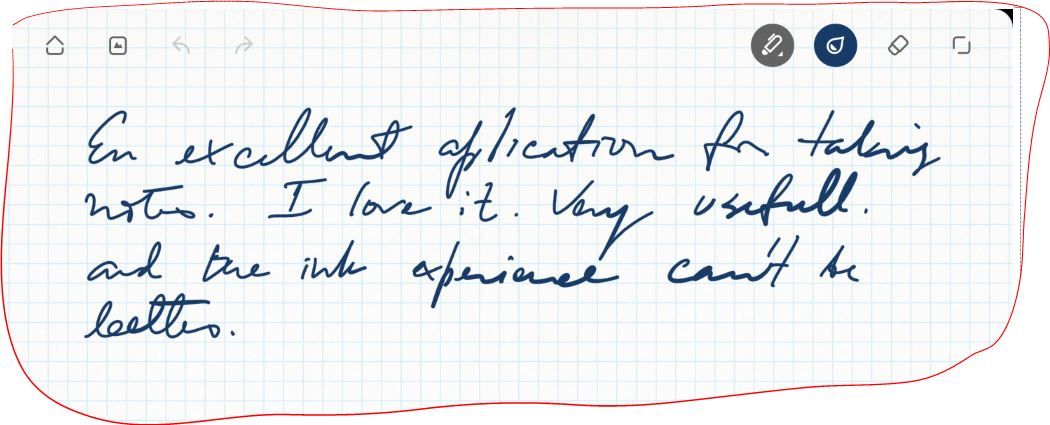 En excellent application for taking
notes. I love it. Very usefull.
and the ink experience can't be
better.